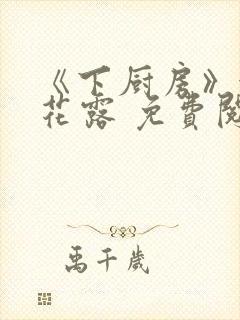 《下厨房》
花露 免費閱
禹千歲